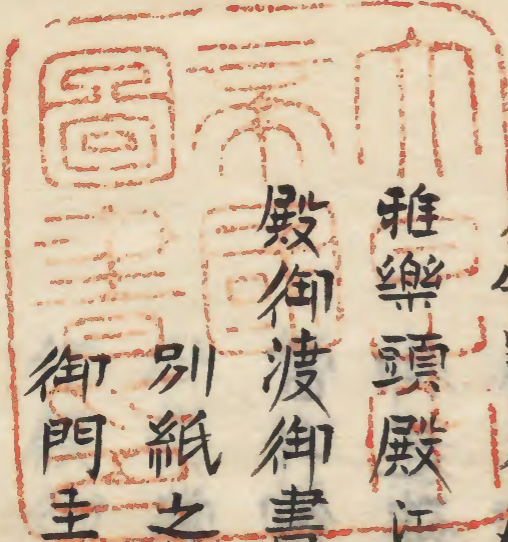 雅樂頭殿江
殿御渡御書
別紙之
御門主